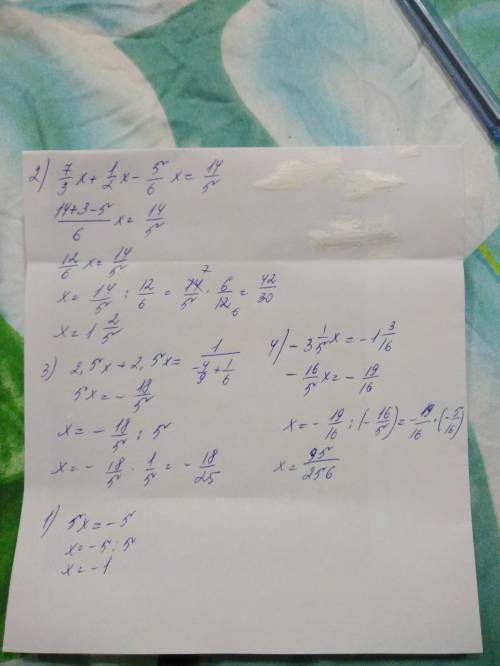 2) 7/3 x + 1/2 x - 5/6 x = 14/5
14+3-5/6 x = 14/5
12/6 x = 14/5
x = 14/5 : 12/6 = 14/5 7 · 6/12 6 = 42/30
x = 1 2/5
3) 2,5x + 2,5x = 1/(-4/9 + 1/6)
5x = - 18/5
x = - 18/5 : 5
x = - 18/5 · 1/5 = - 18/25
4) - 3 1/5 x = -1 3/16
- 16/5 x = - 19/16
x = - 19/16 : (- 16/5) = - 19/16 · (- 5/16)
x = 95/256
1) 5x = -5
x = -5 : 5
x = -1